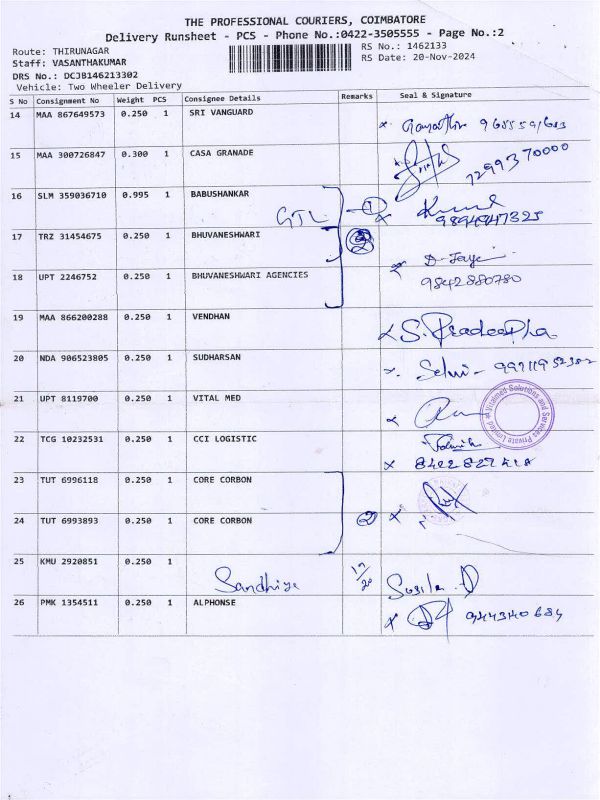 THE PROFESSIONAL COURIERS, COIMBATORE
Delivery Runsheet - PCS - Phone No.:0422-3505555 - Page No.:2
Route: THIRUNAGAR
RS No.: 1462133
Staff: VASANTHAKUMAR
RS Date: 20-Nov-2024
DRS No.: DCJB146213302
Vehicle: Two Wheeler Delivery
S No Consignment No Weight PCS Consignee Details Remarks Seal & Signature
14 MAA 867649573 0.250 1 SRI VANGUARD
15 MAA 300726847 0.300 1 CASA GRANADE 7299370000
16 SLM 359036710 0.995 1 BABUSHANKAR
GTL 1 9894947325
17 TRZ 31454675 0.250 1 BHUVANESHWARI
18 UPT 2246752 0.250 1 BHUVANESHWARI AGENCIES
9842880780
19 MAA 866200288 0.250 1 VENDHAN S. Pradeepha
20 NDA 906523805 0.250 1 SUDHARSAN Selvi
21 UPT 8119700 0.250 1 VITAL MED
Vitalmed Solutions and Services Private Limited
22 TCG 10232531 0.250 1 CCI LOGISTIC
23 TUT 6996118 0.250 1 CORE CORBON
24 TUT 6993893 0.250 1 CORE CORBON 2
25 KMU 2920851 0.250 1
Sandhiya
26 PMK 1354511 0.250 1 ALPHONSE 9443340684